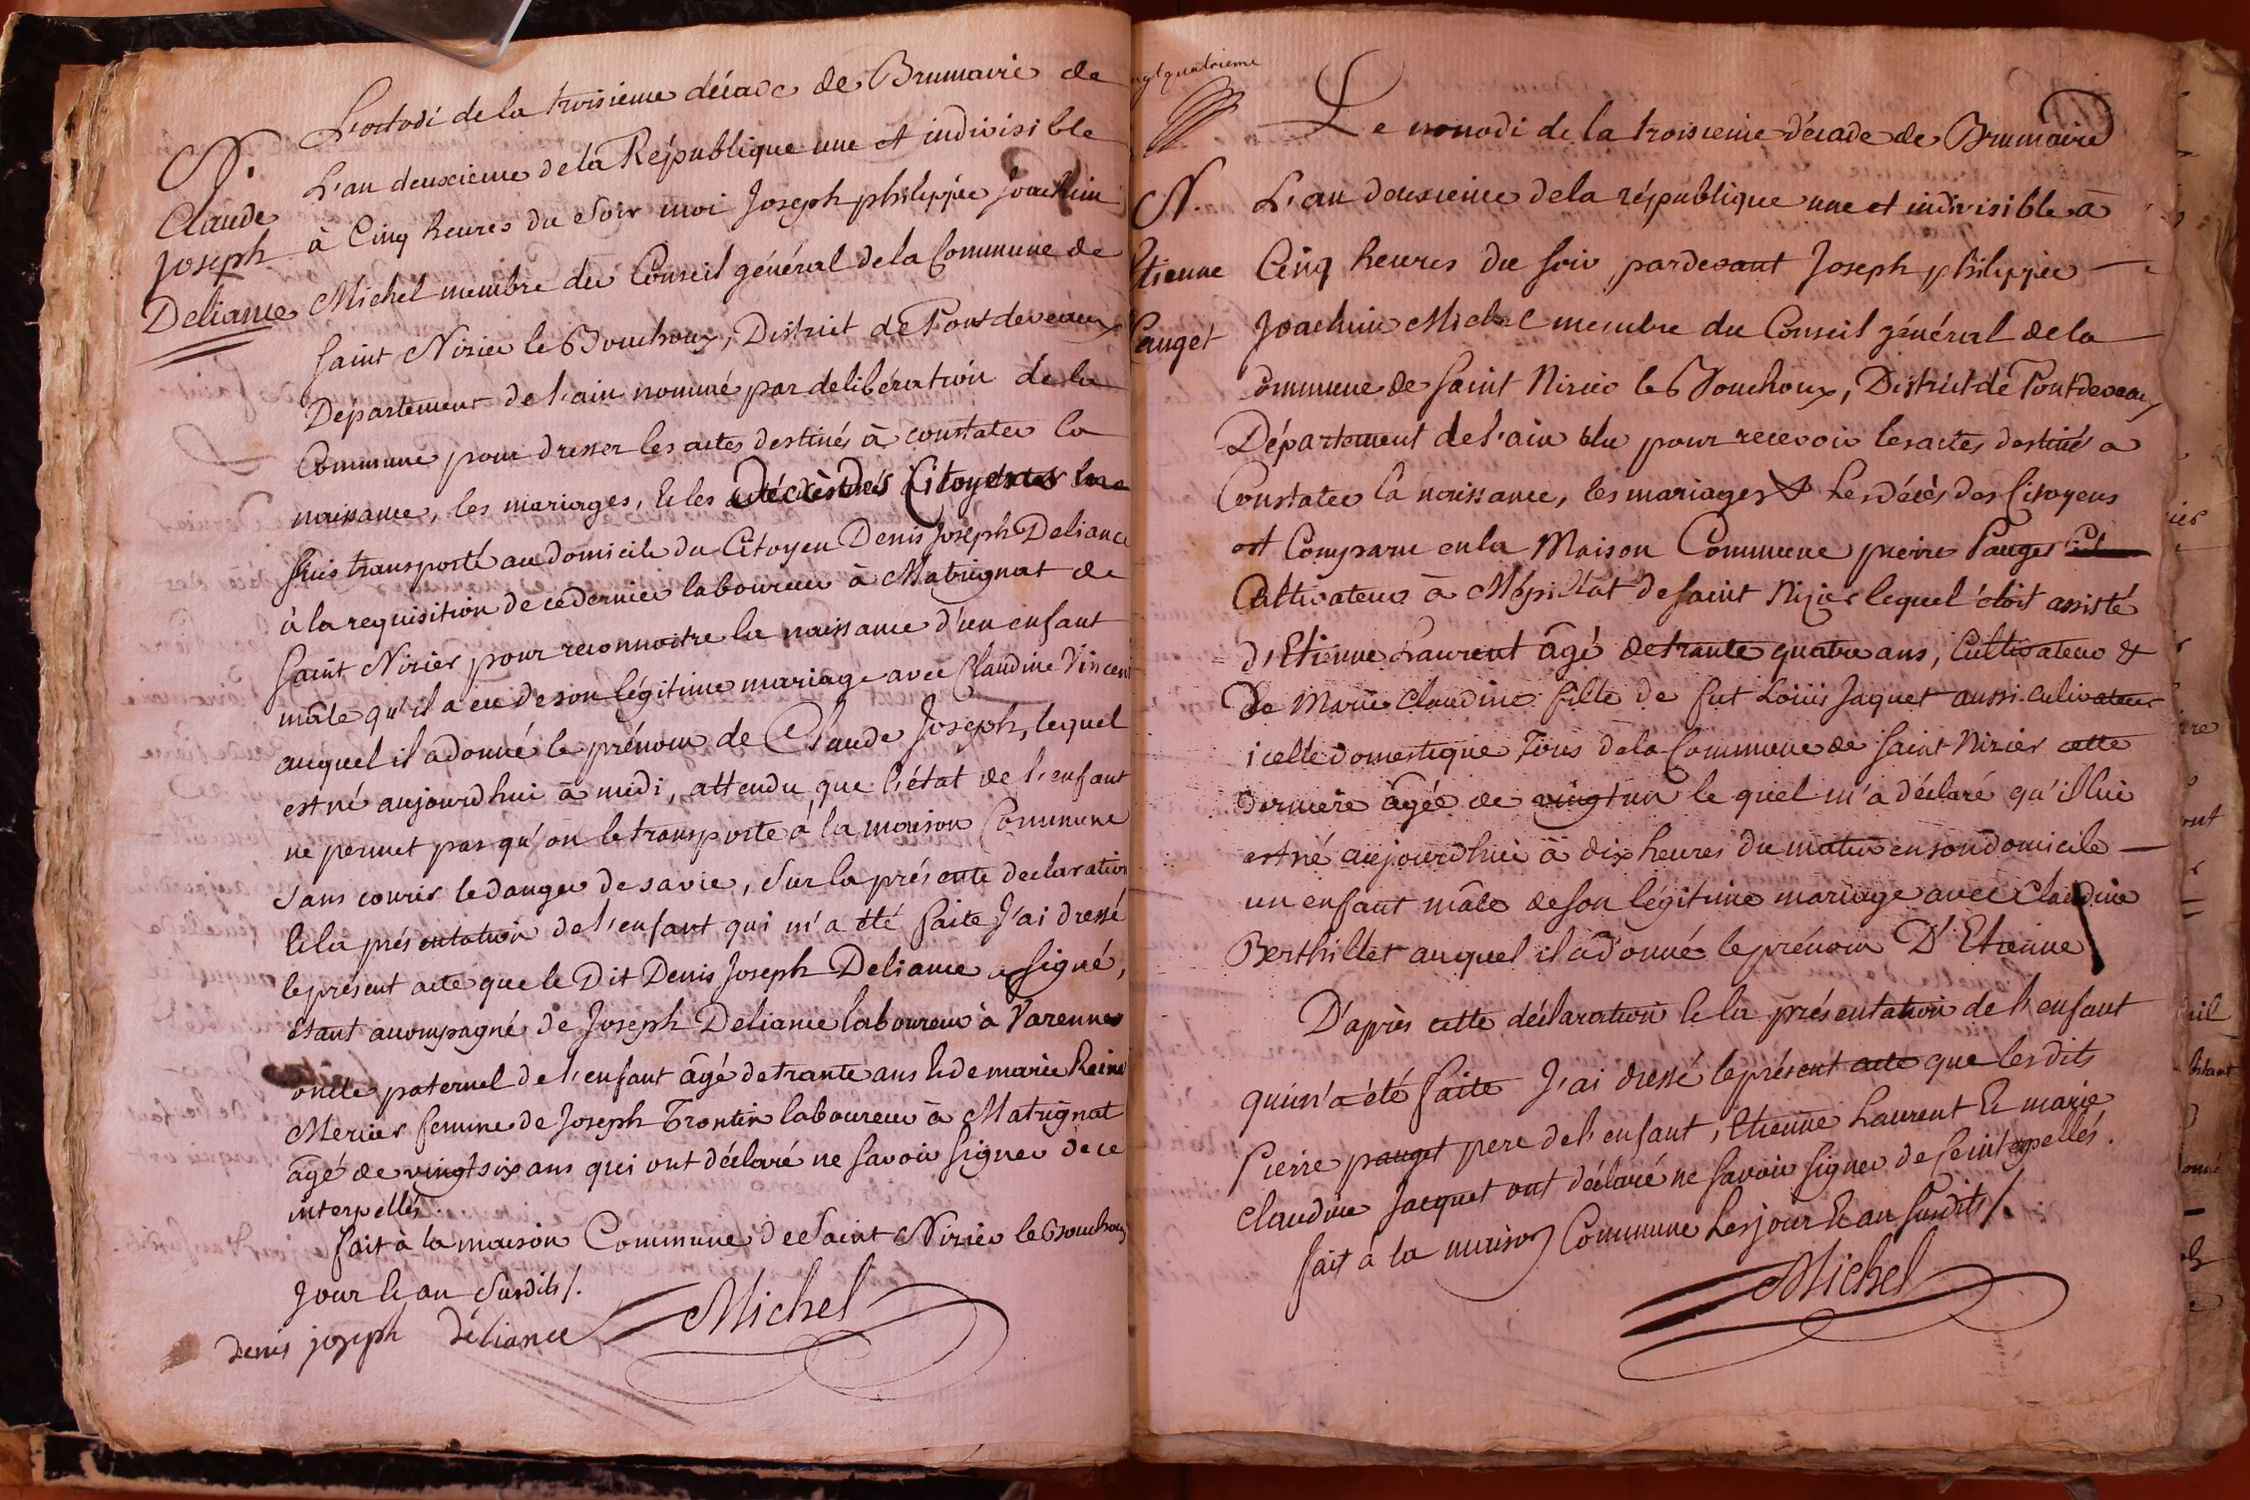 L'octodi de la troisieme décade de Brumaire de
N.
L'an deuxieme de la République une et indivisible
Claude
Joseph
Deliance
à Cinq heures du Soir moi Joseph philippe joachim
Michel membre du Conseil général de la Commune de
Saint Nizier le Bouchoux, District de Pontdevaux
Département de l'ain nommé par deliberation de la
Commune pour dresser les actes destinés à constater la
naissance, les mariages, & les décès des Citoyens me
suis transporté au domicile du Citoyen Denis Joseph Deliance
à la requisition de ce dernier laboureur à Matrignat de
Saint Nizier pour reconnoitre la naissance d'un enfant
mâle qu'il a eu de son légitime mariage avec Claudine Vincent
auquel il a donné le prénom de Claude Joseph, lequel
est né aujourdhui à midi, attendu que l'état de l'enfant
ne permet pas qu'on le transporte à la maison Commune
sans courir le danger de sa vie, Sur la présente declaration
& la présentation de l'enfant qui m'a été faite J'ai dressé
le présent acte que le Dit Denis Joseph Deliance a signé,
étant accompagné de Joseph Deliance laboureur à Varennes
oncle paternel de l'enfant âgé de trante ans & de marie Reine
Mercier femme de Joseph Trontin laboureur à Matrignat
âgé de vingt six ans qui ont déclaré ne savoir signer de ce
interpellés.
fait à la maison Commune de Saint Nizier le Bouchoux
Jour & an Susdits /.
Michel
denis joseph déliance
quatrieme
Le nonodi de la troisieme décade de Brumaire
N.
Etienne
Pauget
L'an deuxieme de la république une et indivisible à
Cinq heures du soir pardevant Joseph philippe
Joachim Michel membre du Conseil général de la
Commune de Saint Nizier le Bouchoux, District de Pontdevaux
Département de l'ain élu pour recevoir les actes destiné a
Constater la naissance, les mariages & les décès des Citoyens
est Comparu en la Maison Commune pierre Pauget
Cultivateur à Mépillat de Saint Nizier lequel étoit assisté
d'Etienne Laurent âgé de trante quatre ans, Cultivateur &
De Marie Claudine fille de fut Loüis Jaquet aussi culivateur
icelle domestique Tous de la Commune de Saint Nizier cette
derniere âgée de vingt un le quel m'a déclaré qu'il lui
est né aujourdhui à dix heures du matin en son domicile
un enfant mâle de son légitime mariage avec Claudine
Berthillet auquel il a donné le prénom D'Etienne
D'après cette déclaration & la présentation de l'enfant
qui m'a été faite J'ai dressé le présent acte que les dits
Pierre pauget pere de l'enfant, Etienne Laurent & marie
claudine Jacquet ont déclaré ne savoir signer de ce interpellés.
fait à la maison Commune Les jour & an susdits /.
Michel